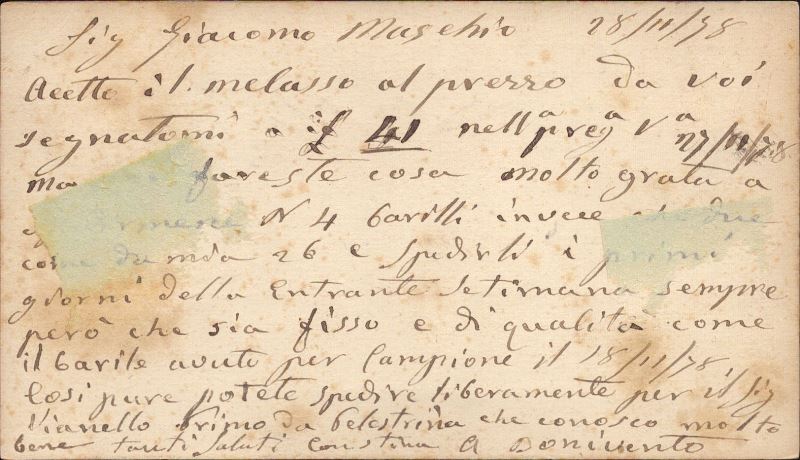 Sig Giacomo Maschio 28/11/78
Acetto il melasso al prezzo da voi
segnatomi a £ 41 nella preg.a V.a 27/11/78
ma fareste cosa molto grata a
N 4 barilli invece che due
come da mia 26 e spedirli i primi
giorni della Entrante Setimana sempre
però che sia fisso e di qualità come
il barile avuto per Campione il 18/11/78
Cosi pure potete spedire liberamente per il Sig
Vianello Primo da Pelestrina che conosco molto
bene tanti Saluti A Bonivento